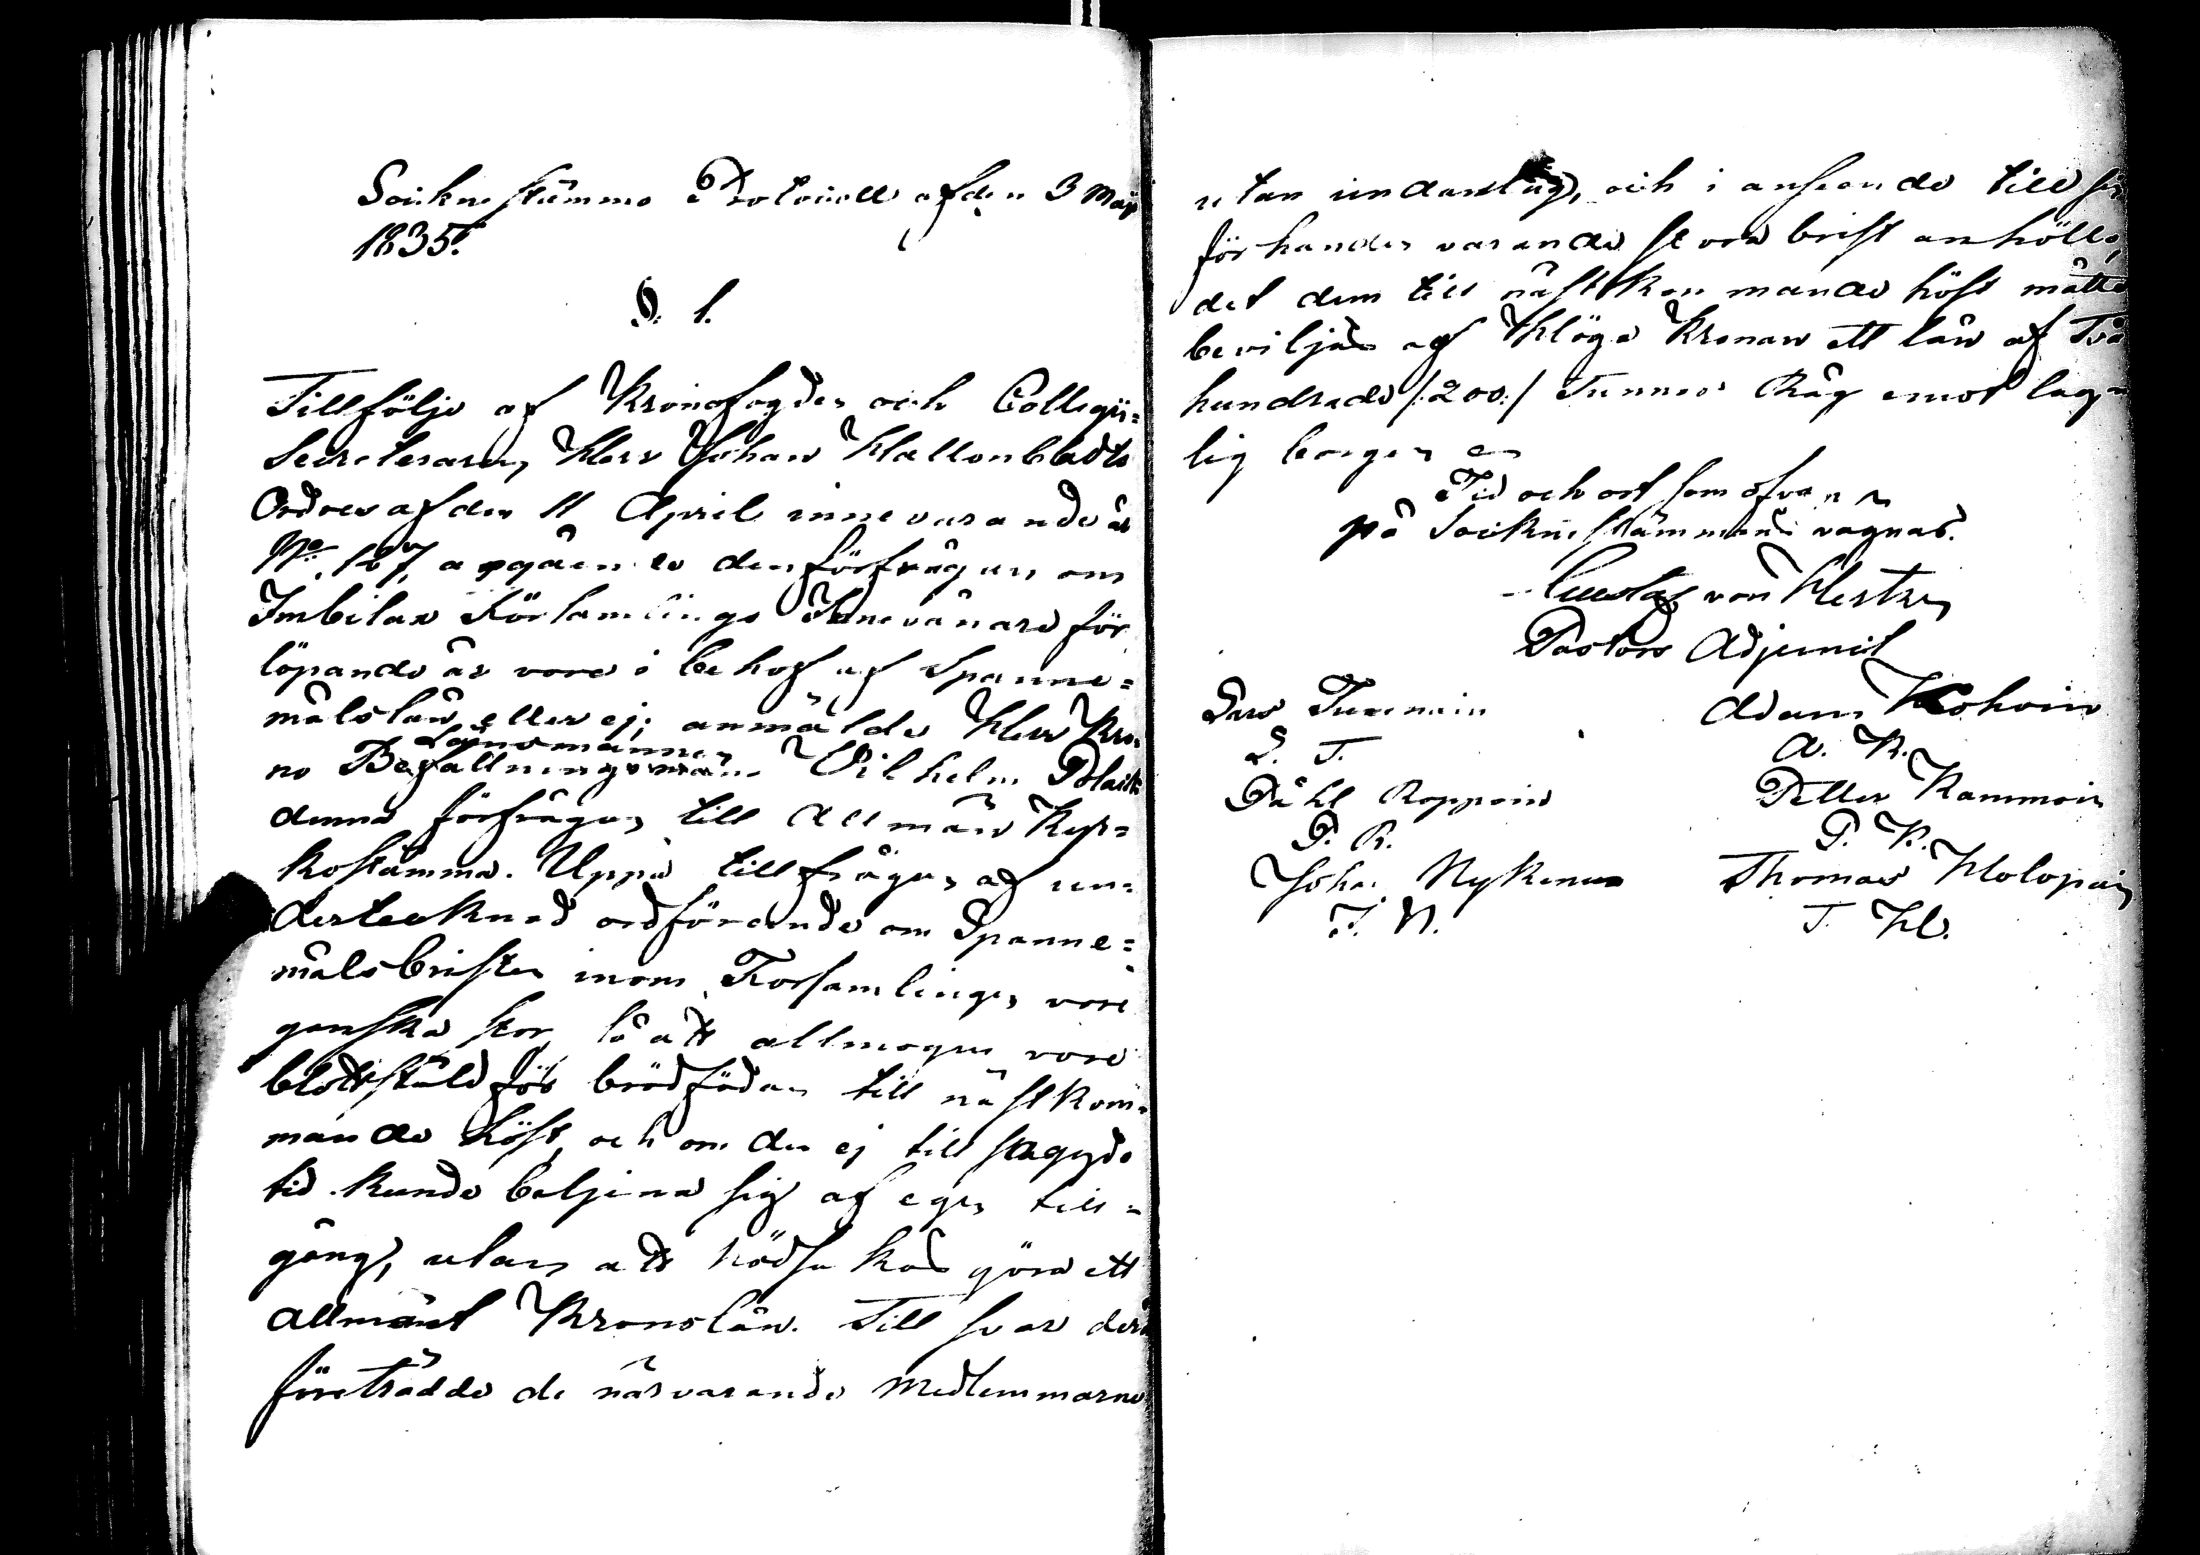 Sockne stämmo Protocoll af den 3 Maji
1835.
§. 1.
Tillföljo af Kronofogden och Collegii=
Secreteraren, Herr Johan Hallonbladts
Ordres af den 11 April innevarande år
No. 127, angående den förfrågan om
Imbilax Församlings Innevånare för
löpande år vore i behof af Spanne=
målslån eller ej; anmälde Herr Kro-
no Länsmannen Vilhelm Polack
denna förfrågan till Allmän Kyr=
kostämma. Uppå tillfrågan af un=
dertecknad ordförande om Spanne=
målsbristen inom Församlingen vore
ganska stor, så att allmogen vore
blottstäld för brödfödan till nästkom-
mande höst, och om den ej till sagde
tid kunde betjena sig af egen till=
gång, utan att nödsakad göra ett
allmänt Kronolån. Till svar derå
företrädde de närvarande Medlemmarne
utan undantag, och i anseende till
förhanden varande stora brist anhöllo,
det dem till nästkommande höst måtte
beviljas af Höga Kronan ett lån af Två
hundrade /:200:/ Tunnor Råg emot lag-
lig borgen
Tid och ort som ofvan
på Sockne stämmans vägnar.
Gustaf von Hertzen
Pastors Adjunct
Lars Turunain Adam Kohoin
L. T. A. K.
Påhl Roppoin Petter Kammoin
P. R. P. K.
Johan Nykenen Thomas Holopain
J. N. T. H.